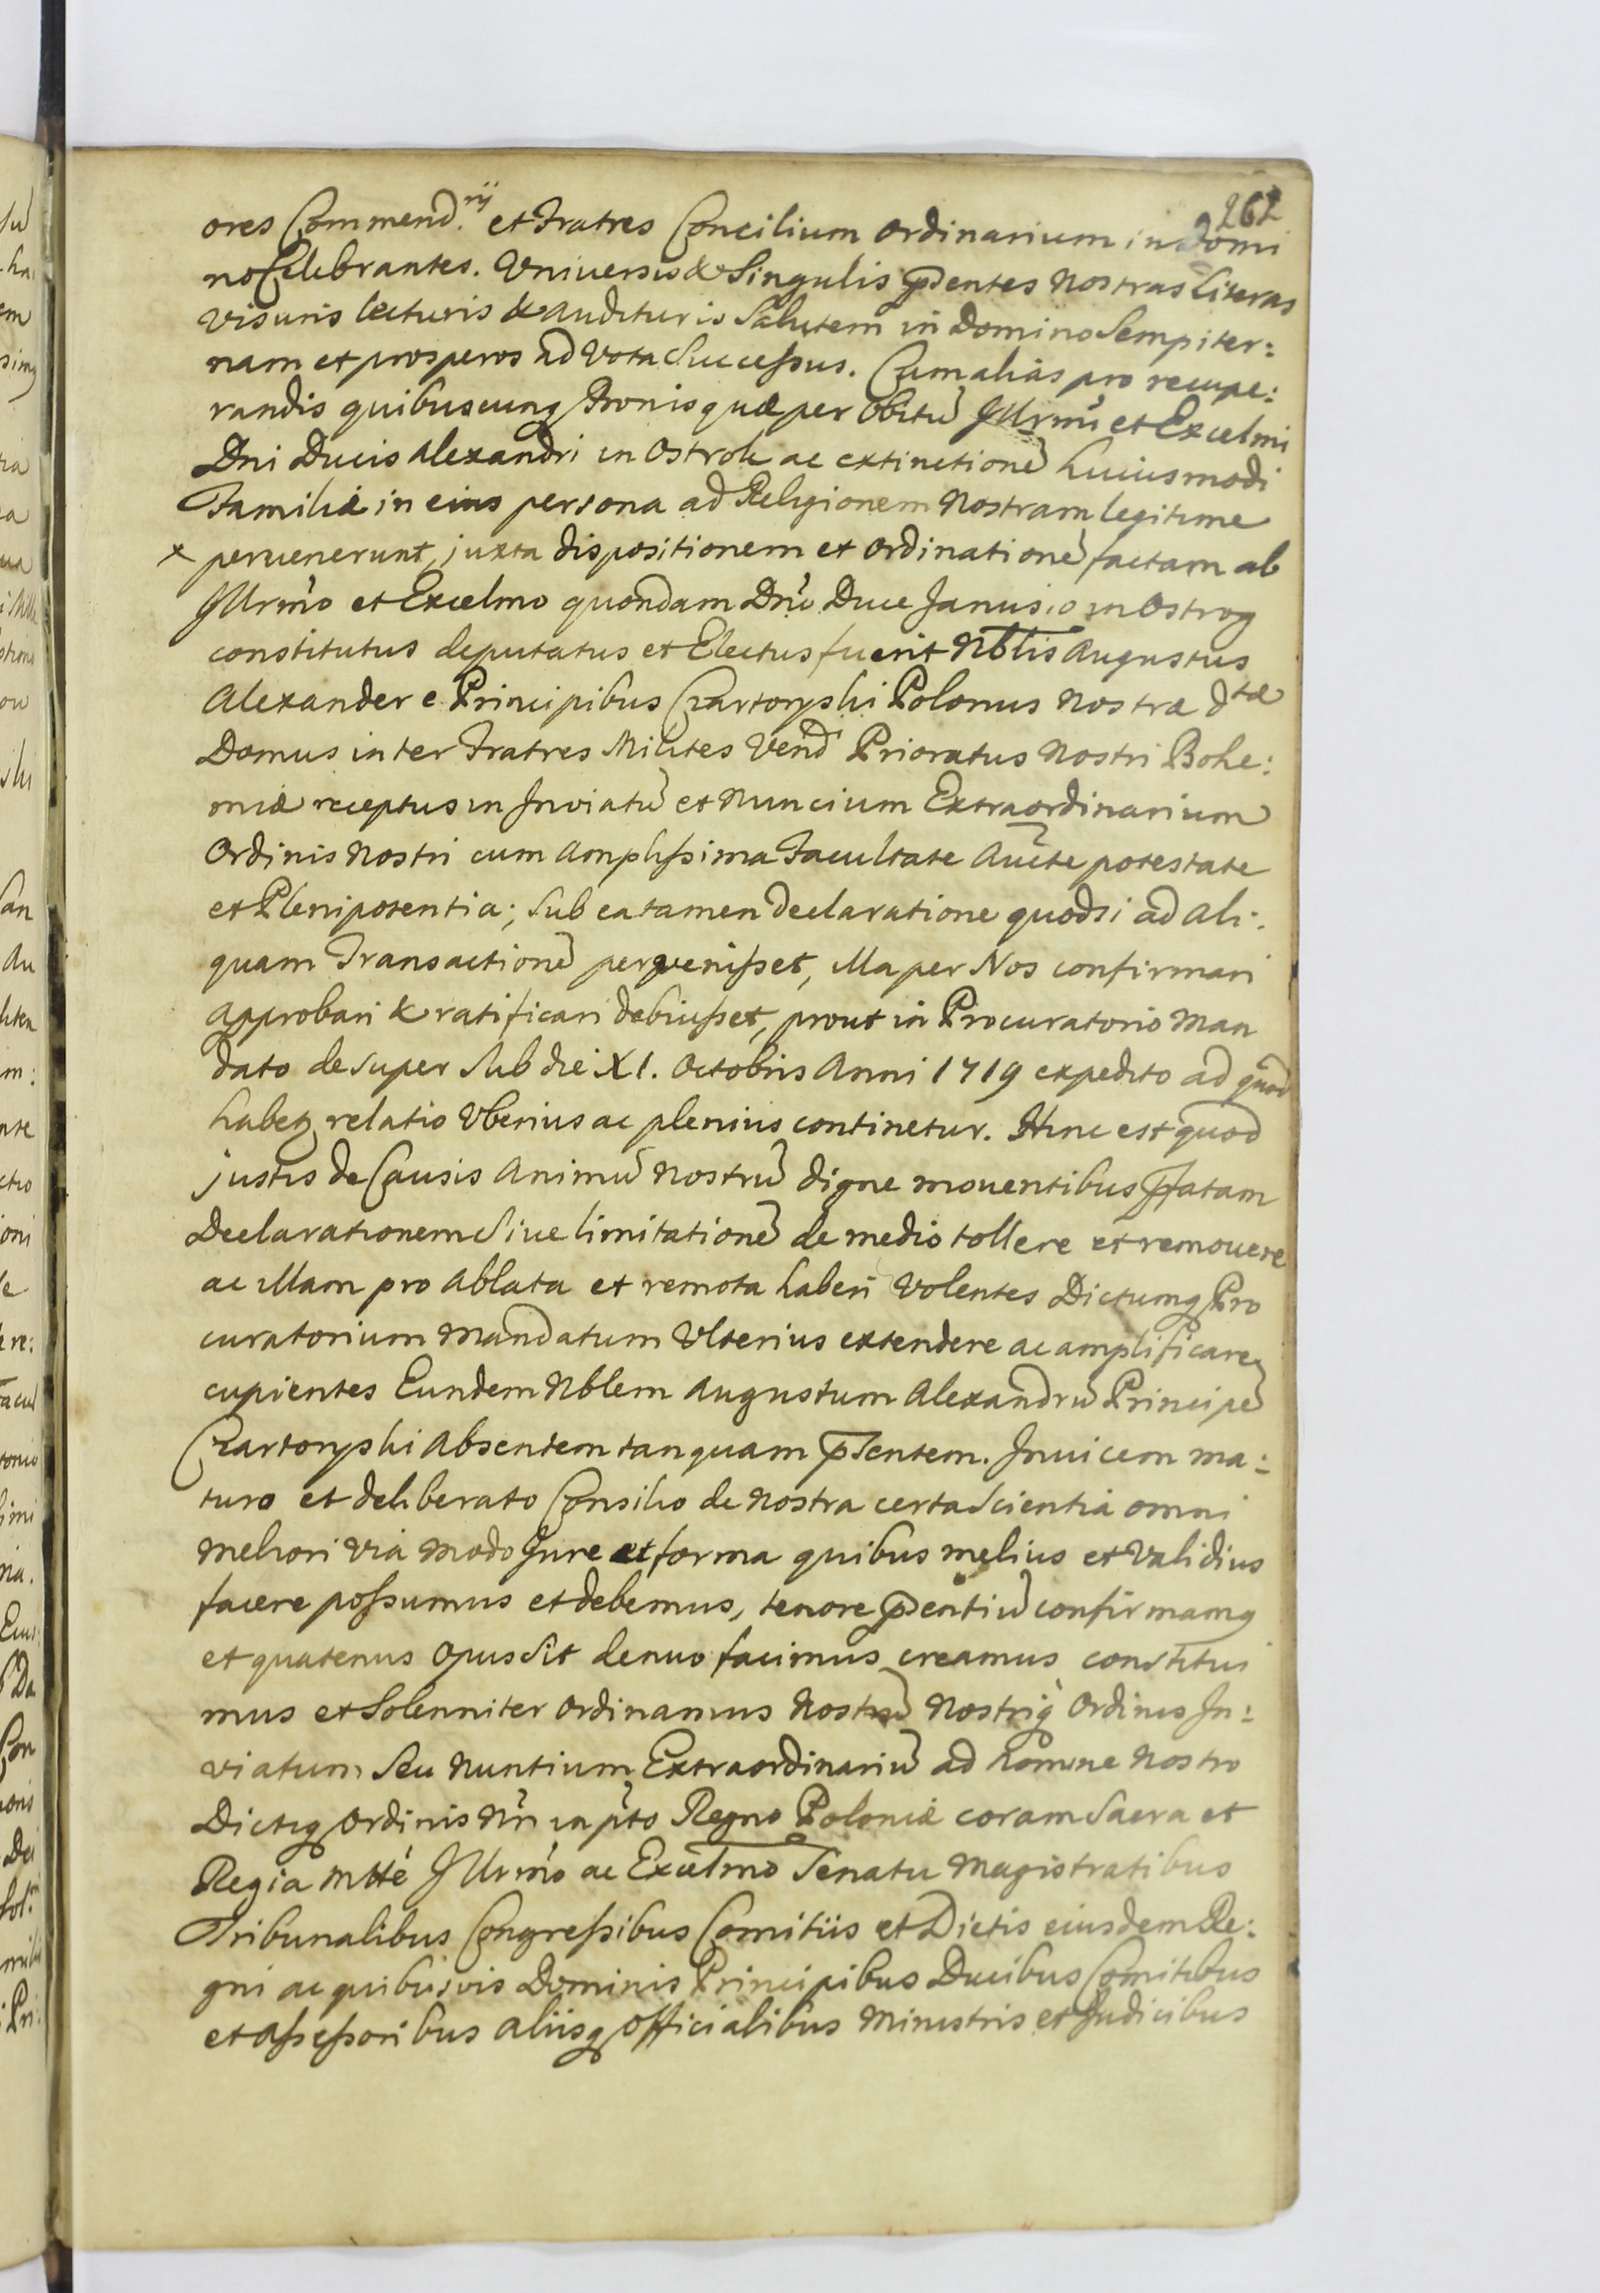 262
ores Commend.rij et Fratres Concilium Ordinarium in Domi
no Celebrantes. Vniuersis & Singulis pñtentes Nostras Literas
visuris lecturis & audituris Salutem in Domino Sempiter:
nam et prosperos ad Vota Successus. Cum alias pro recupe:
randis quibuscunq Bonis quæ per Obitũ Illrmi et Excelmi
Dni Ducis Alexandri in Ostrok ac extinctionẽ huiusmodi
Familiæ in eius persona ad Religionem Nostram legitime
x peruenerunt, juxta dispositionem et Ordinationẽ factam ab
Illrmo et Excelmo quondam Dnõ Duce Janusio in Ostrog
constitutus deputatus et Electus fuerit Nblis Augustus
Alexander e Principibus Czartoryski Polonus Nostræ dtæ
Domus inter Fratres Milites Vend Prioratus Nostri Bohe:
miæ receptus in Inviatũ et Nuncium Extraordinarium
Ordinis Nostri cum Amplissima Facultate Aucte potestate
et Plenipotentia; Sub ea tamen declaratione quodsi ad ali:
quam Transactionẽ peruenisset, illa per Nos confirmari
Approbari & ratificari debuisset, prout in Procuratorio Man
dato desuper Sub die XI. Octobris Anni 1719 expedito ad quod
habetʒ relatio Vberius ac plenius continetur. Hinc est quod
justis de Causis Animũ Nostrũ digne mouentibus pfatam
Declarationem Siue limitationẽ de medio tollere et remouere
ac illam pro Ablata et remota haberi Volentes Dictumq Pro
curatorium Mandatum Vlterius extendere ac amplificare
cupientes Eundem Nblem Augustum Alexandrũ Principẽ
Czartoryski Absentem tanquam pSentem. Inuicem ma:
turo et deliberato Consilio de Nostra certa Scientia omni
Meliori via Modo Jure et forma quibus melius et Validius
facere possumus et debemus, tenore pñtentiũ confirmamq
et quatenus Opus Sit denuo facimus creamus constitui
mus et Solenniter Ordinamus Nostrũ Nostriq Ordinis In:
viatum Seu Nuntium Extraordinariũ ad Nomine Nostro
Dictiq Ordinis Nri in pto Regno Poloniæ coram Sacra et
Regia Mtte Illrmo ac Excelmo Senatu Magistratibus
Tribunalibus Congressibus Comitiis et Dietis eiusdem Re:
gni ac quibusvis Dominis Principibus Ducibus Comitibus
et Assessoribus Aliisq Officialibus Ministris et Judicibus